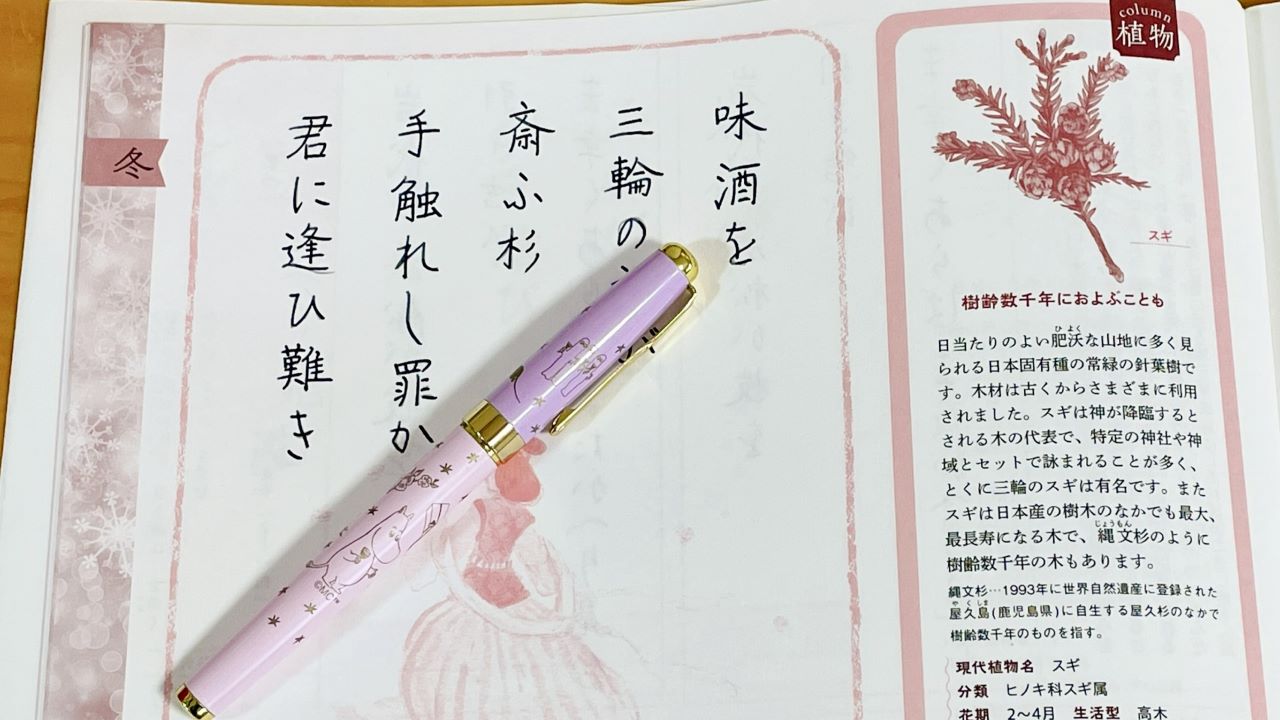 味酒を
三輪の
斎ふ杉
手触れし罪か
君に逢ひ難き
冬
column
植物
スギ
樹齢数千年におよぶことも
日当たりのよい肥沃な山地に多く見
られる日本固有種の常緑の針葉樹で
す。木材は古くからさまざまに利用
されました。スギは神が降臨すると
される木の代表で、特定の神社や神
域とセットで詠まれることが多く、
とくに三輪のスギは有名です。また
スギは日本産の樹木のなかでも最大、
最長寿になる木で、縄文杉のように
樹齢数千年の木もあります。
縄文杉…1993年に世界自然遺産に登録された
屋久島(鹿児島県)に自生する屋久杉のなかで
樹齢数千年のものを指す。
現代植物名 スギ
分類 ヒノキ科スギ属
花期 2〜4月 生活型 高木
©MC™